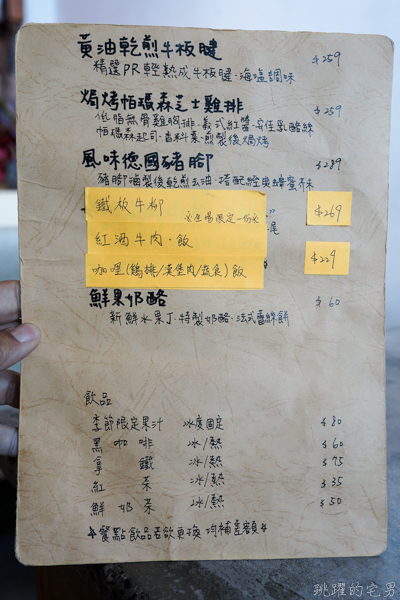 黃油乾煎牛板腱 $259
精選PR輕熟成牛板腱·海鹽調味
焗烤帕瑪森芝士雞排 $259
低脂無骨雞胸排·義式紅醬·安佳乳酪絲
帕瑪森起司·香料束·煎製後焗烤
風味德國豬腳 $289
豬腳滷製後乾煎去油·搭配經典蜂蜜芥末
鐵板牛柳 $269
※全場限定一份※
尾
紅酒牛肉·飯
咖哩(雞排/漢堡肉/蔬食)飯 $229
鮮果奶酪 $60
新鮮水果丁·特製奶酪·法式蕾絲餅
飲品
季節限定果汁 冰度固定 $80
黑咖啡 冰/熱 $60
拿鐵 冰/熱 $75
紅茶 冰/熱 $35
鮮奶茶 冰/熱 $50
餐點飲品若欲更換均補差額
跳躍的宅男